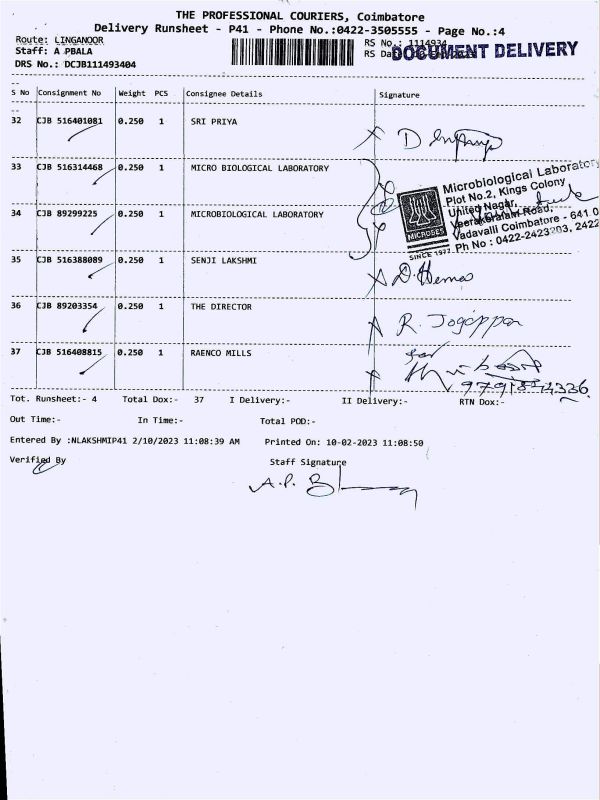 THE PROFESSIONAL COURIERS, Coimbatore
Delivery Runsheet - P41 - Phone No.:0422-3505555 - Page No.:4
Route: LINGANOOR
RS No.: 1114934
Staff: A PBALA
RS Da
DOCUMENT DELIVERY
DRS No.: DCJB111493404
S No Consignment No Weight PCS Consignee Details Signature
32 CJB 516401081 0.250 1 SRI PRIYA
33 CJB 516314468 0.250 1 MICRO BIOLOGICAL LABORATORY
Microbiological Laboratory
Plot No.2, Kings Colony
United Nagar,
Veerakeralam Road,
Vadavalli Coimbatore - 641 0
Ph No : 0422-2423203, 2422
MICROBE
SINCE 1977
34 CJB 89299225 0.250 1 MICROBIOLOGICAL LABORATORY
35 CJB 516388089 0.250 1 SENJI LAKSHMI
D. Hema
36 CJB 89203354 0.250 1 THE DIRECTOR
R. Jogappan
37 CJB 516408815 0.250 1 RAENCO MILLS
Tot. Runsheet:- 4 Total Dox:- 37 I Delivery:- II Delivery:- RTN Dox:-
Out Time:- In Time:- Total POD:-
Entered By :NLAKSHMIP41 2/10/2023 11:08:39 AM Printed On: 10-02-2023 11:08:50
Verified By Staff Signature
A.P.